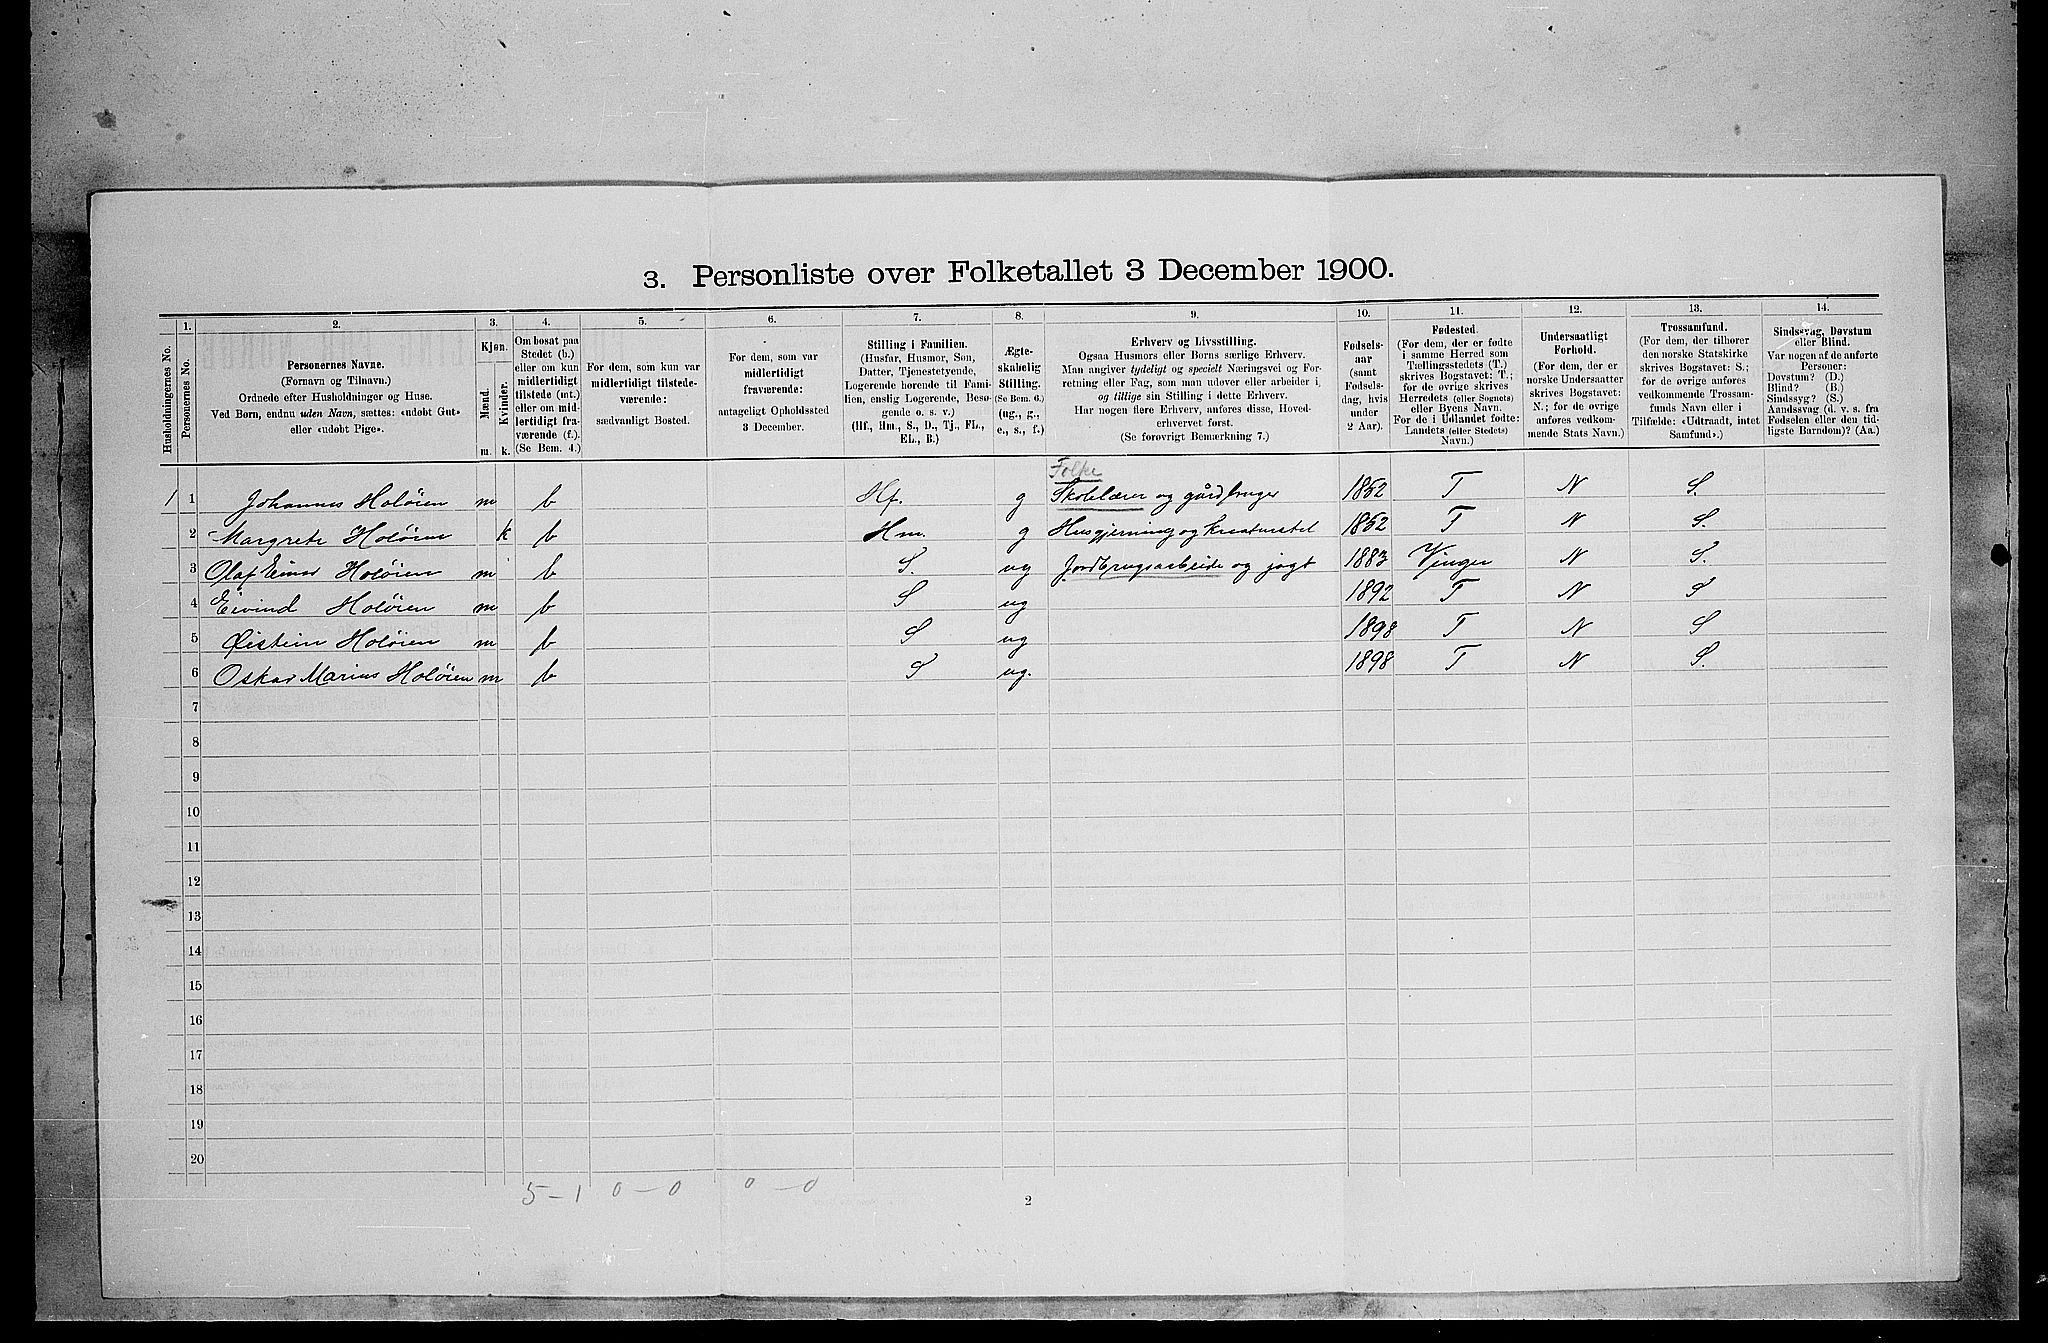 3. Personliste over Folketallet 3 December 1900.
Husholdningernes No.
1. Personernes No.
2. Personernes Navne. (Fornavn og Tilnavn.) Ordnede efter Husholdninger og Huse. Ved Børn, endnu uden Navn, sættes: «udobt Gut» eller «udobt Pige».
3. Kjøn. Mænd. m. Kvinder. k.
4. Om bosat paa Stedet (b.) eller om kun midlertidigt tilstede (mt.) eller om midlertidigt fraværende (f.) (Se Bem. 4.)
5. For dem, som kun var midlertidigt tilstedeværende: sædvanligt Bosted.
6. For dem, som var midlertidigt fraværende: antageligt Opholdssted 3 December.
7. Stilling i Familien. (Husfar, Husmor, Søn, Datter, Tjenestetyende, Logerende hørende til Familien, enslig Logerende, Besøgende o. s. v.) (Hf., Hm., S., D., Tj., FL., EL., B.)
8. Ægteskabelig Stilling. (Se Bem. 6.) (ug., g., e., s., f.)
9. Erhverv og Livsstilling. Ogsaa Husmors eller Børns særlige Erhverv. Man angiver tydeligt og specielt Næringsvei og Forretning eller Fag, som man udøver eller arbeider i, og tillige sin Stilling i dette Erhverv. Har nogen flere Erhverv, anføres disse, Hovederhvervet først. (Se forøvrigt Bemærkning 7.)
10. Fødselsaar (samt Fødselsdag, hvis under 2 Aar).
11. Fødested. (For dem, der er fødte i samme Herred som Tællingsstedets (T.) skrives Bogstavet: T.; for de øvrige skrives Herredets (eller Sognets) eller Byens Navn. For de i Udlandet fødte: Landets (eller Stedets) Navn.)
12. Undersaatligt Forhold. (For dem, der er norske Undersaatter skrives Bogstavet: N.; for de øvrige anføres vedkommende Stats Navn.)
13. Trossamfund. (For dem, der tilhører den norske Statskirke skrives Bogstavet: S.; for de øvrige anføres vedkommende Trossamfunds Navn eller i Tilfælde: «Udtraadt, intet Samfund».)
14. Sindssvag, Døvstum eller Blind. Var nogen af de anførte Personer: Døvstum? (D.) Blind? (B.) Sindssyg? (S.) Aandssvag (d. v. s. fra Fødselen eller den tidligste Barndom)? (Aa.)
Folke
1 1 Johannes Holøien m b Hf. g Skolelærer og gårdbruger 1852 T N S.
2 Margrete Holøien k b Hm. g Husgjerning og kreaturstel 1852 T N S.
3 Olaf Einar Holøien m b S. ug Jordbrugsarbeide og jagt 1883 Vinger N S.
4 Eivind Holøien m b S ug 1892 T N S
5 Øistein Holøien m b S ug 1898 T N S
6 Oskar Marius Holøien m b S ug. 1898 T N S.
7
8
9
10
11
12
13
14
15
16
17
18
19
20
5-1 0-0 0-0
2